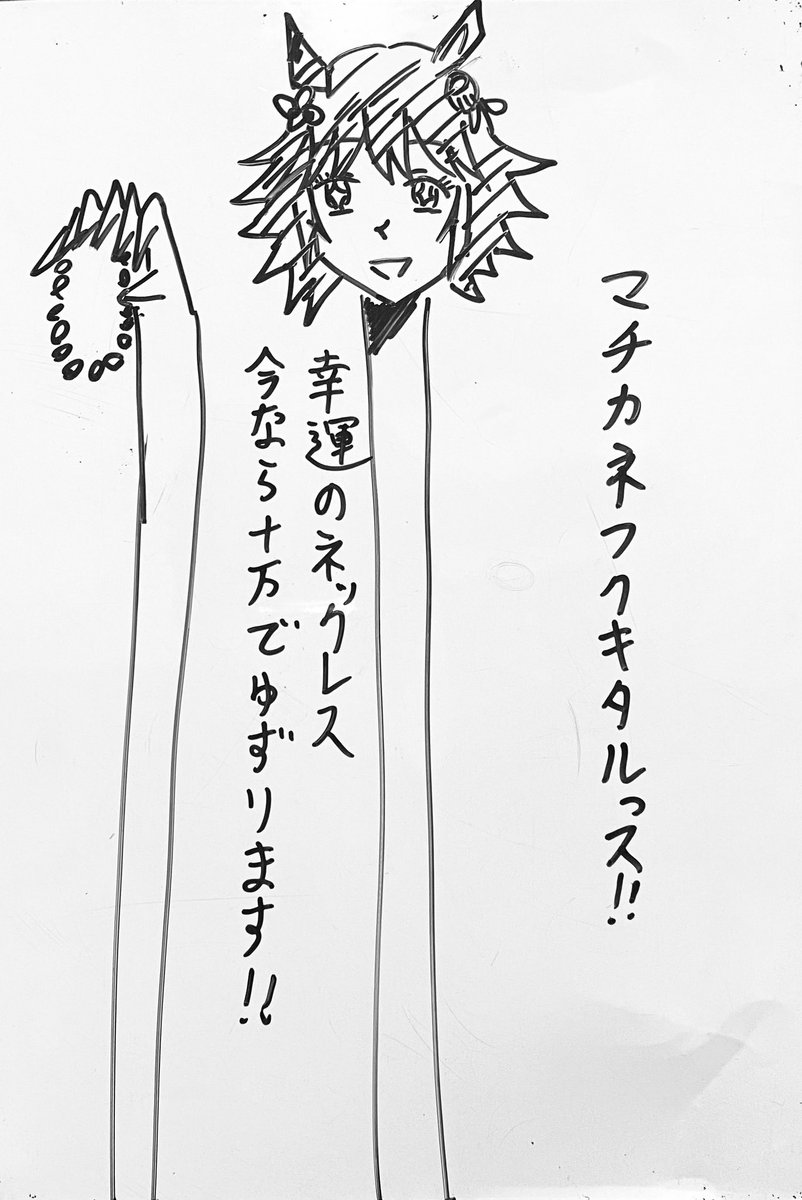 マチカネフクキタルっス!!
幸運のネックレス
今なら十万でゆずります!!